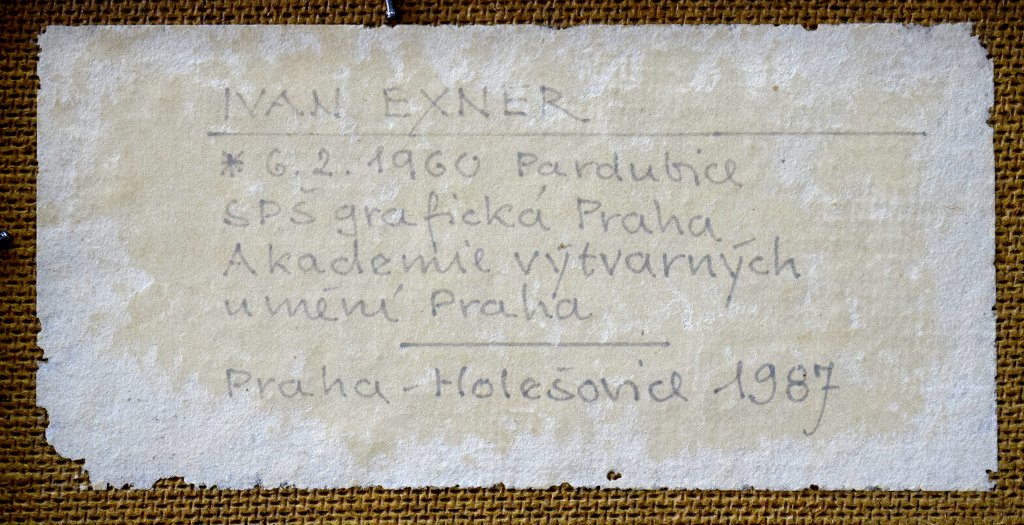 IVAN EXNER
* 6.2.1960 Pardubice
SPŠ grafická Praha
Akademie výtvarných
umění Praha
Praha-Holešovice 1987